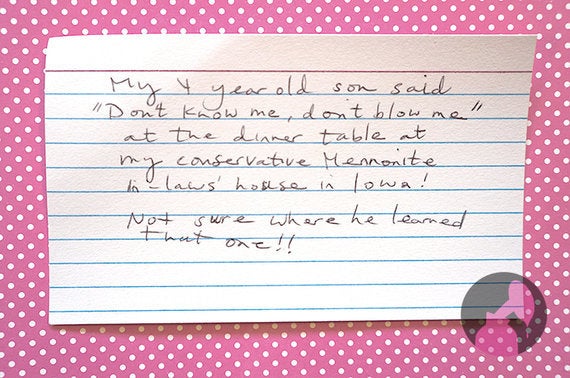 My 4 year old son said
"Dont know me, don't blow me"
at the dinner table at
my conservative Mennonite
in-laws' house in Iowa!
Not sure where he learned
that one!!